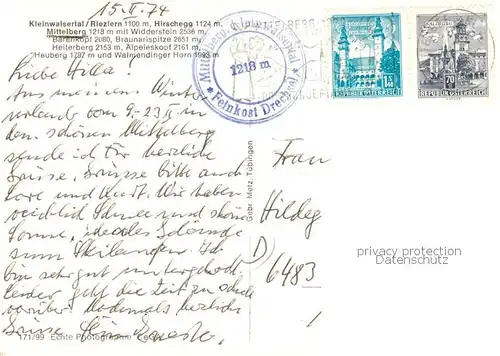 15.II.74
Kleinwalsertal / Riezlern 1100 m, Hirschegg 1124 m,
Mittelberg 1218 m mit Widderstein 2536 m,
Bärenkopf 2080, Braunarispitze 2651 m,
Heiterberg 2153 m, Älpeleskopf 2161 m,
Heuberg 1797 und Walmendinger Horn 1993 m
Mittelberg, Kleinwalsertal
1218 m
* Feinkost Drechsel *
1.40
REPUBLIK ÖSTERREICH
70
REPUBLIK ÖSTERREICH
Liebe Hilla!
Aus meinem Winter
urlaub vom 9.-23.II in
dem schönen Mittelberg
sende ich Dir herzliche
Grüsse. Grüsse bitte auch
Lore und Kurt. Wir haben
reichlich Schnee und schöne
Sonne, ideales Gelände
zum Skilaufen. Ich
bin sehr gut untergebracht.
Leider geht die Zeit zu schnell
vorüber. Nochmals herzliche
Grüsse
Gebr. Metz, Tübingen
Frau
Hildeg
D
6483
privacy protection
Datenschutz
171/99 Echte Photographie